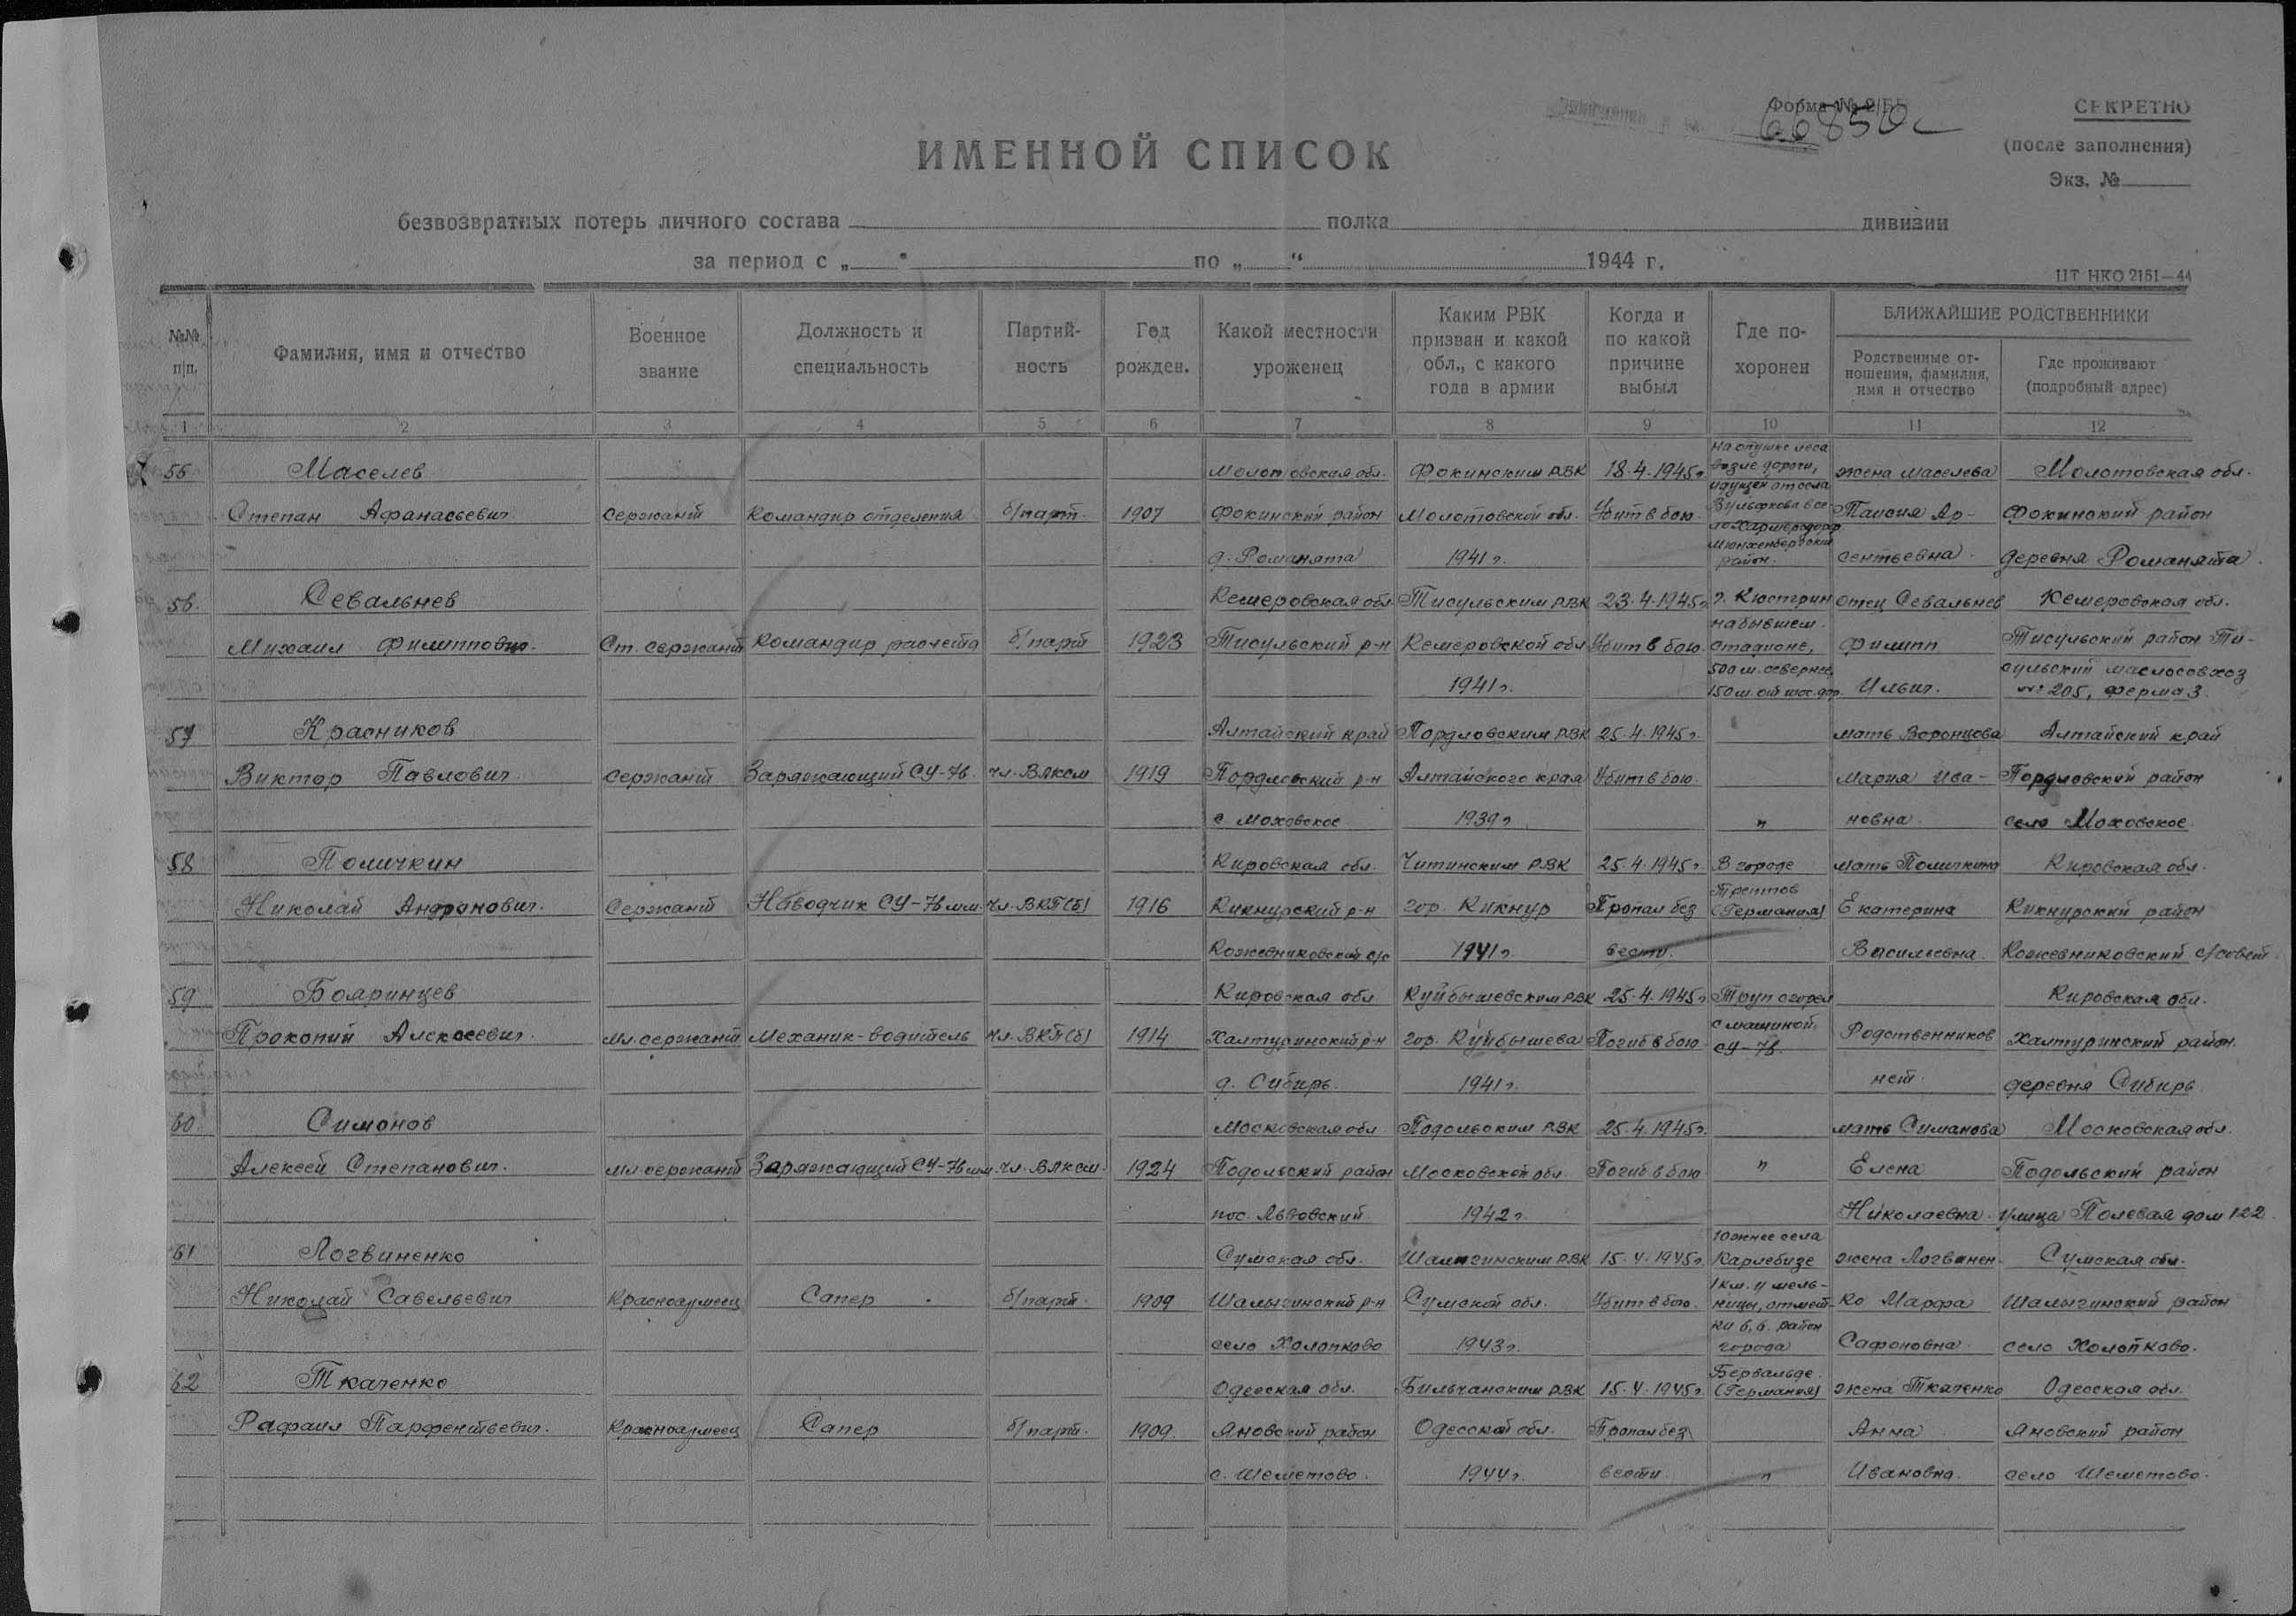 Форма № 2/БП
66850с
СЕКРЕТНО
(после заполнения)
Экз. №
ИМЕННОЙ СПИСОК
безвозвратных потерь личного состава полка дивизии
за период с „ “ по „ “ 1944 г.
ЦТ НКО 2161—44
№№ п/п.
Фамилия, имя и отчество
Военное звание
Должность и специальность
Партий- ность
Год рожден.
Какой местности уроженец
Каким РВК призван и какой обл., с какого года в армии
Когда и по какой причине выбыл
Где по- хоронен
БЛИЖАЙШИЕ РОДСТВЕННИКИ
Родственные от- ношения, фамилия, имя и отчество
Где проживают (подробный адрес)
1 2 3 4 5 6 7 8 9 10 11 12
на опушке леса
55 Маселев Молотовская обл. Фокинским РВК 18.4.1945г возле дороги, жена Маселева Молотовская обл.
идущей от села
Степан Афанасьевич сержант Командир отделения б/парт. 1907 Фокинский район Молотовской обл. Убит в бою. в се- Таисия Ар- Фокинский район
район.
д. Романята 1941г. сентьевна. деревня Романята.
56. Севальнев Кемеровская обл. Тисульским РВК 23.4.1945г г. Кюстрин отец Севальнев Кемеровская обл.
на бывшем
Михаил Филиппович. Ст. сержант Командир расчета б/парт 1923 Тисульский р-н Кемеровской обл Убит в бою. стадионе, Филипп Тисульский район Ти-
500 м. севернее, сульский маслосовхоз
1941г. 150 м. от шос. дор. Ильич. №205, ферма 3.
57 Красников Алтайский край РВК 25.4.1945г. мать Воронцова Алтайский край
Виктор Павлович. сержант Заряжающий СУ-76. чл. ВЛКСМ 1919 р-н Алтайского края Убит в бою. Мария Ива- район
с Моховское 1939г " новна. село Моховское.
58 Поличкин Кировская обл. Читинским РВК 25.4.1945г. В городе мать Поличкина Кировская обл.
Трептов
Николай Андронович. Сержант Наводчик СУ-76мм. чл. ВКП(б) 1916 Кикнурский р-н гор. Кикнур Пропал без (Германия) Екатерина Кикнурский район
Кожевниковский с/с 1941г. вести. Васильевна. Кожевниковский с/совет.
59 Бояринцев Кировская обл. Куйбышевским РВК 25.4.1945г Труп сгорел Кировская обл.
с машиной
Прокопий Алексеевич. Мл. сержант Механик-водитель чл. ВКП(б) 1914 Халтуринский р-н гор. Куйбышева Погиб в бою СУ-76. Родственников Халтуринский район.
д. Сибирь. 1941г. нет. деревня Сибирь.
60. Симонов Московская обл Подольским РВК 25.4.1945г. мать Симанова Московская обл.
Алексей Степанович. Мл. сержант Заряжающий СУ-76мм. чл. ВЛКСМ. 1924 Подольский район Московской обл. Погиб в бою " Елена Подольский район
пос. Львовский 1942г Николаевна. улица Полевая дом 122
южнее села
61 Логвиненко Сумская обл. Шалыгинским РВК 15.4.1945г. Карлебизе жена Логвинен- Сумская обл.
1 км. у мель-
Николай Савельевич Красноармеец Сапер б/парт. 1909 Шалыгинский р-н Сумской обл. Убит в бою. ницы, отмет- ко Марфа Шалыгинский район
ки 6,6. район
село Холопково 1943г. города Сафоновна. село Холопково.
Бервальде.
62 Ткаченко Одесская обл. РВК 15.4.1945г. (Германия) жена Ткаченко Одесская обл.
Рафаил Парфентьевич. Красноармеец Сапер б/парт. 1909. Яновский район Одесской обл. Пропал без Анна Яновский район
с. Шеметово. 1944г. вести. " Ивановна. село Шеметово.